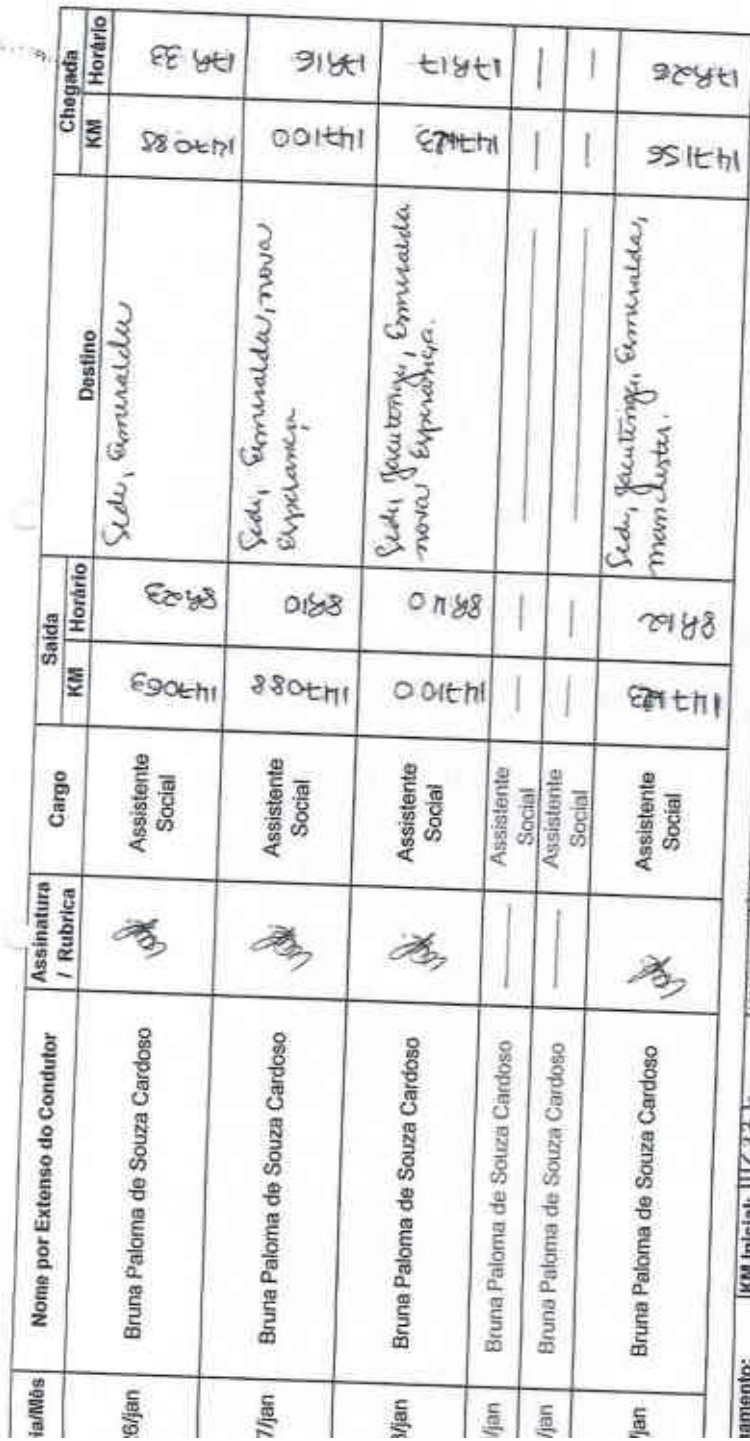 ia/Mês Nome por Extenso do Condutor Assinatura / Rubrica Cargo Saída Destino Chegada
KM Horário KM Horário
26/jan Bruna Paloma de Souza Cardoso Assistente Social 147063 8h23 Sede, Esmeralda 147088 17h33
7/jan Bruna Paloma de Souza Cardoso Assistente Social 147088 8h10 Sede, Esmeralda, nova Esperança, 147100 17h16
8/jan Bruna Paloma de Souza Cardoso Assistente Social 147100 8h40 Sede, Jacutinga, Esmeralda nova Esperança. 147123 17h17
/jan Bruna Paloma de Souza Cardoso — Assistente Social — — — — —
/jan Bruna Paloma de Souza Cardoso — Assistente Social — — — — —
/jan Bruna Paloma de Souza Cardoso Assistente Social 147123 8h12 Sede, Jacutinga, Esmeralda, manchester. 147156 17h26
gamento: KM Inicial: